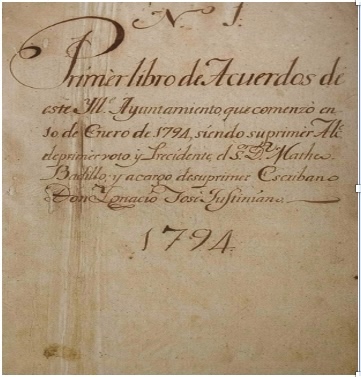 N. 1.
Primer libro de Acuerdos de
este Ill.e Ayuntamiento, que comenzó en
10 de Enero de 1794, siendo su primer Al.e
de primer voto y Precidente, el S.r D.n Matheo
Badillo, y a cargo de su primer Escribano
Don Ignacio José Justiniano
1794.